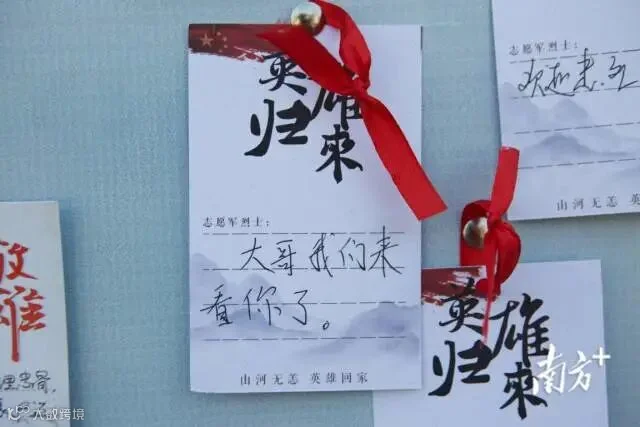 英雄
归来
志愿军烈士：
大哥我们来
看你了。
山河无恙 英雄回家
志愿军烈士：
欢迎
山河无恙 英
英雄
归来
南方+
大数跨境